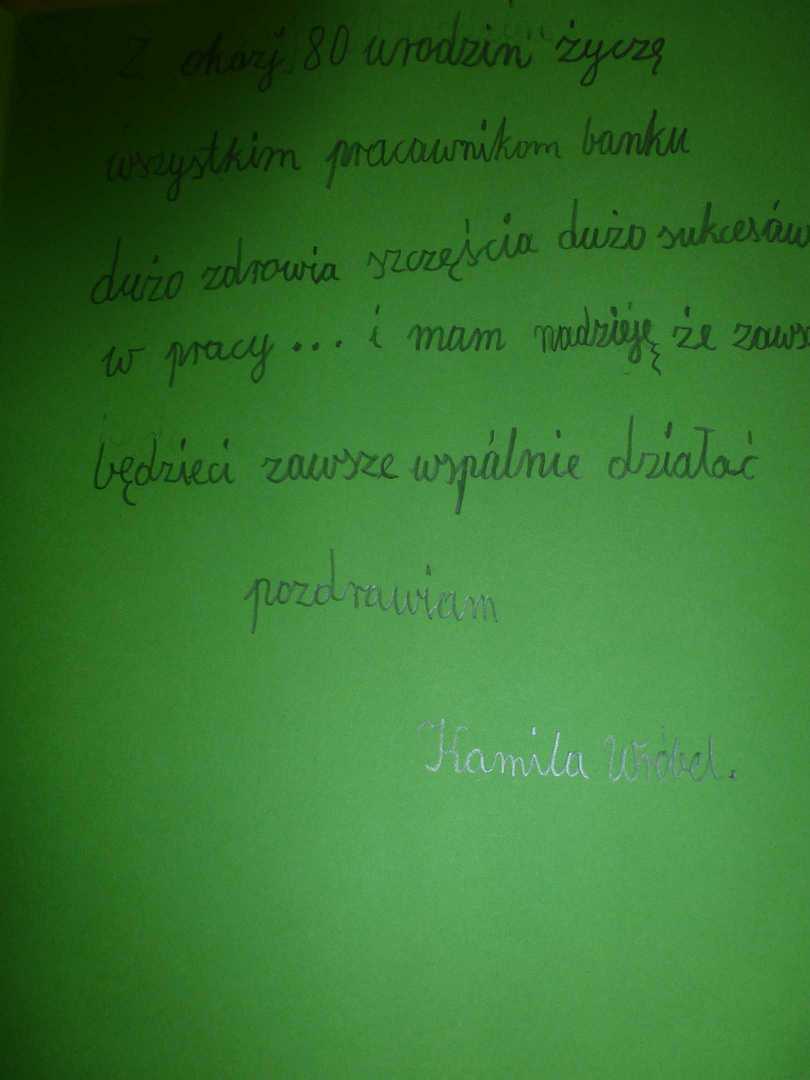 Z okazj 80 urodzin życzę
wszystkim pracownikom banku
dużo zdrowia szczęścia dużo sukcesów
w pracy... i mam nadzieję że zaws
będzieci zawsze wspólnie działać
pozdrawiam
Kamila Wróbel.